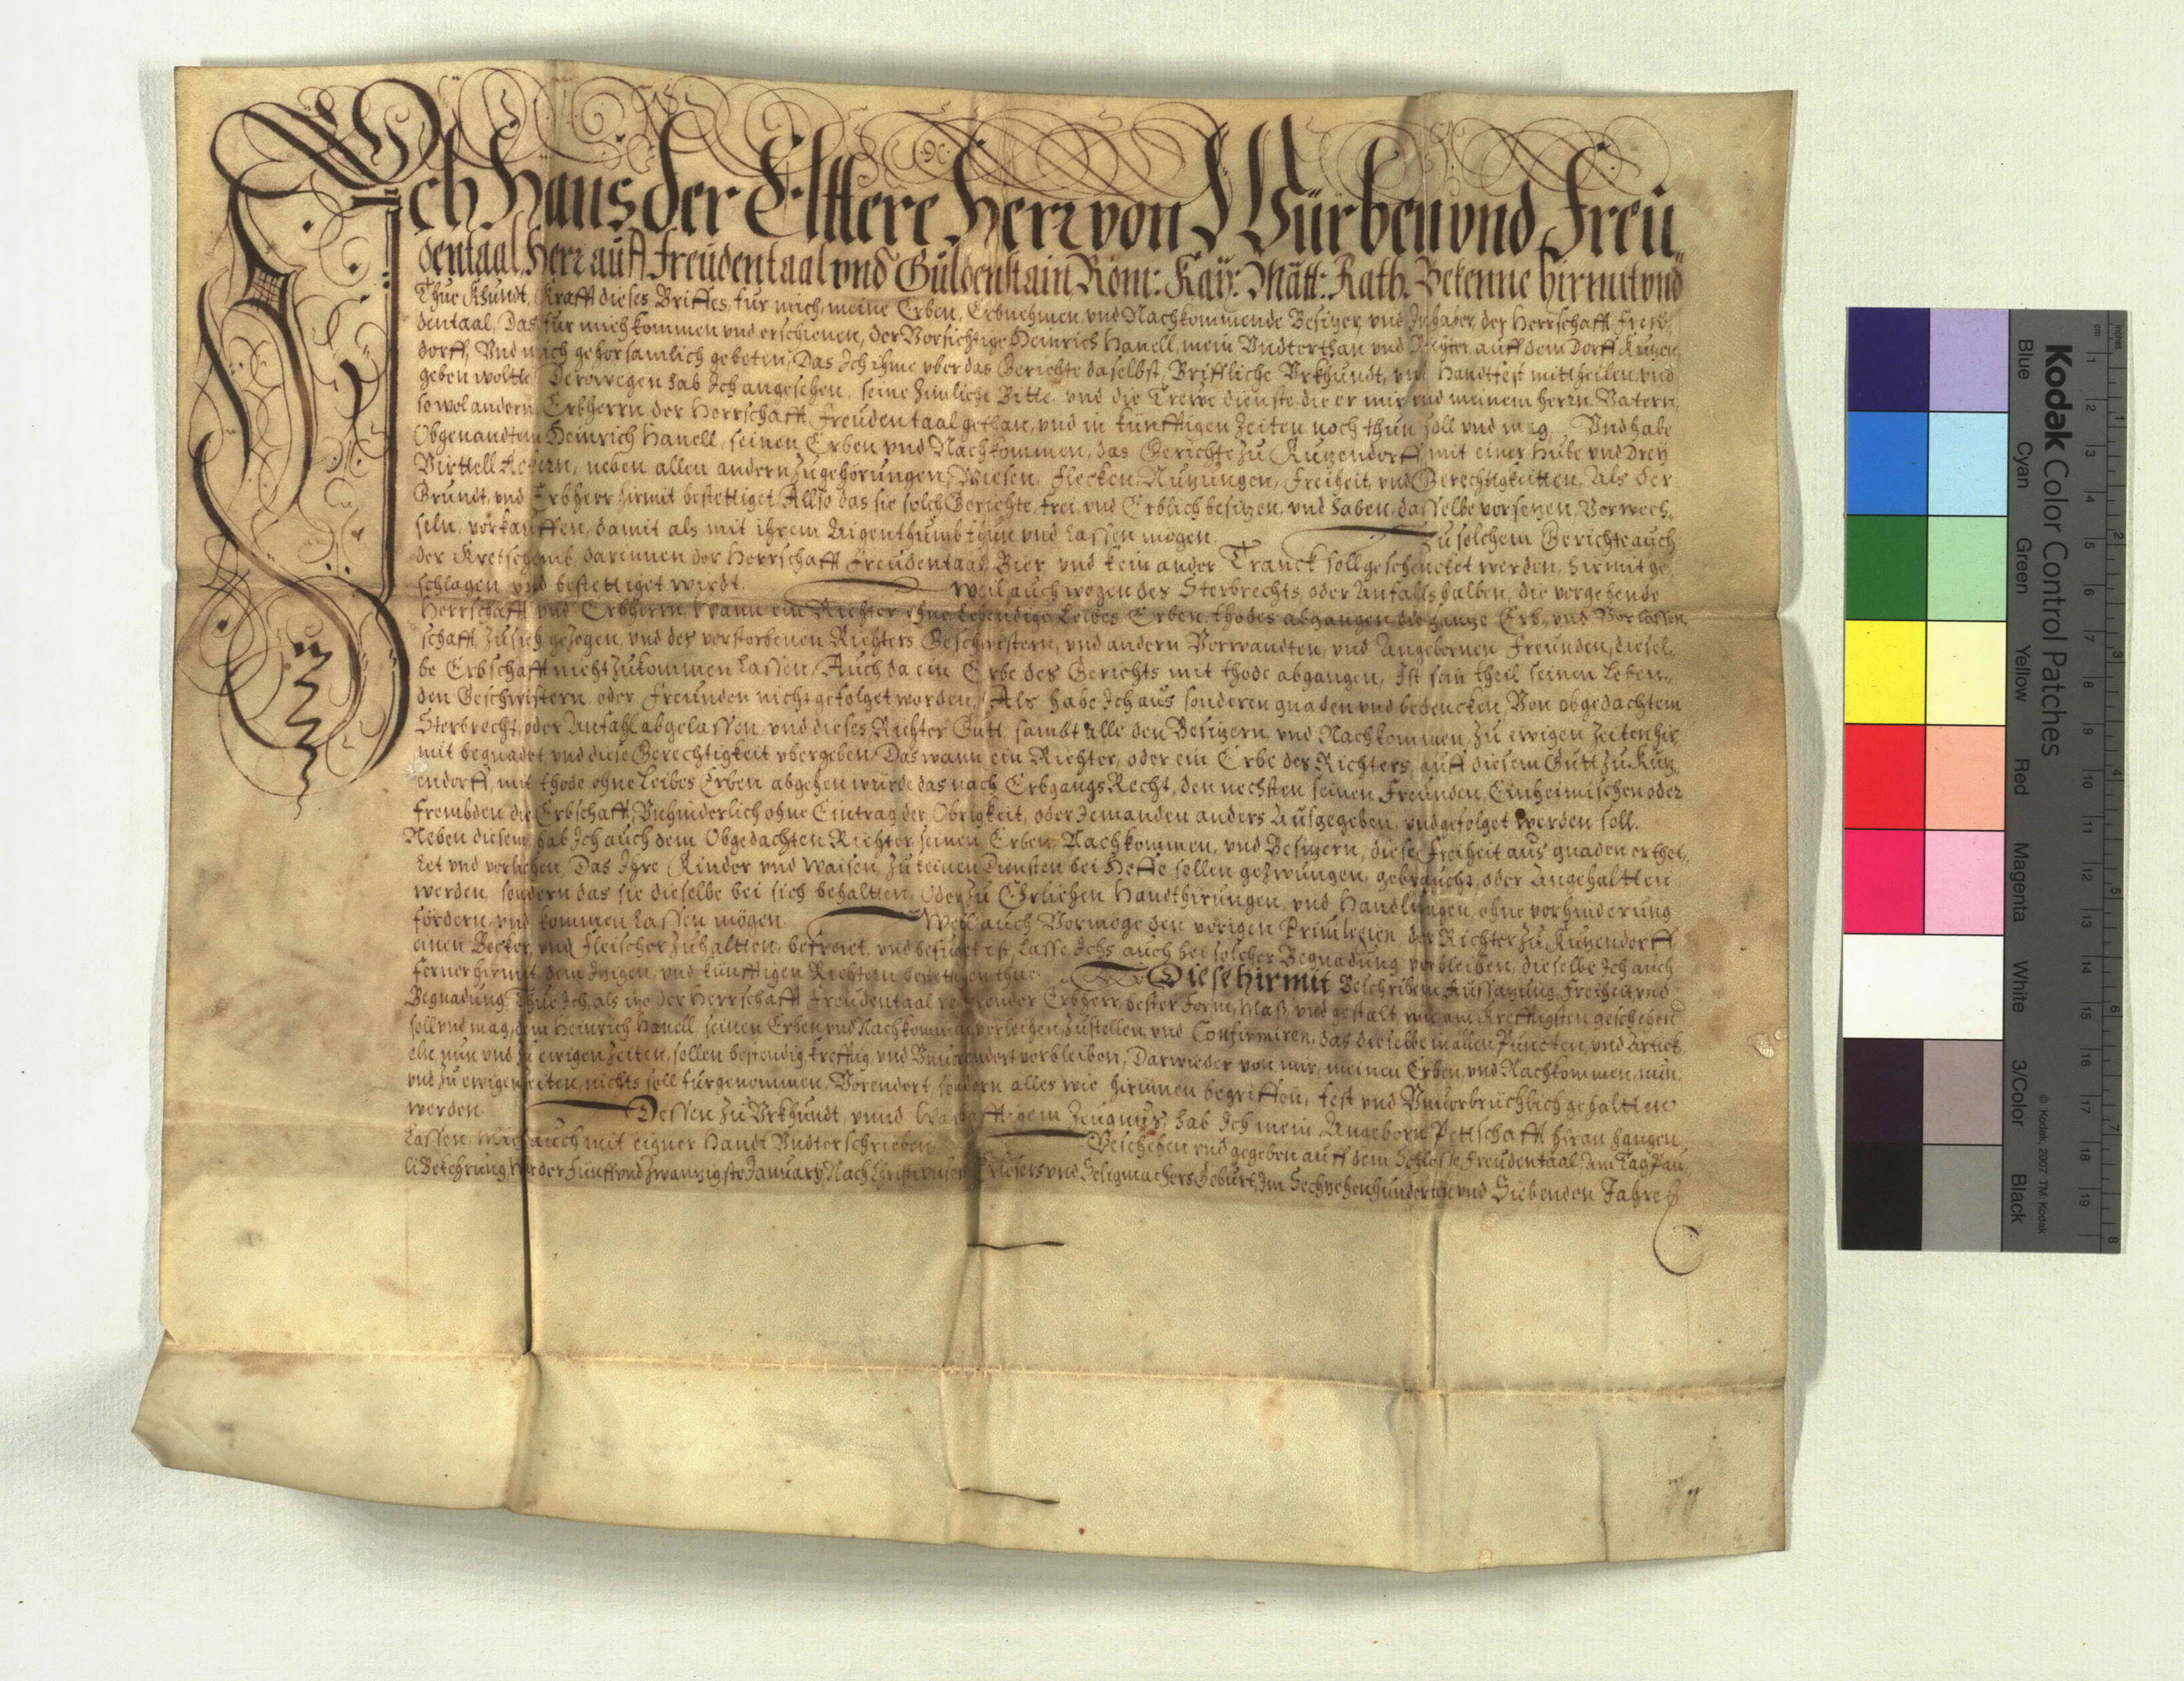 Ich Hans der Elttere Herr von Würben vnd Freü„
dentaal, Herr auff Freüdentaal vnd Güldenstain, Röm: Kaÿ: Maÿtt: Rath. Bekenne hirmit vnd
Thue Khundt, Krafft dieses Briffes, für mich, meine Erben, Erbnehmen vnd Nachkommende Besitzer, vnd Inhaber, der Herrschafft Freü„
dentaal, Das für mich kommen vnd erschienen, der Vorsichtige Heinrich Hanell, mein Vndterthan vnd Richter auff dem Dorff Kutzen„
dorff, Vnd mich gehorsamlich gebeten, Das Ich ihme vber das Gerichte daselbst, Briffliche Vrkhundt, vnd Handtfest mittheilen, vnd
geben wolte, Derowegen hab Ich angesehen, seine Zimliche Bitte, vnd die Trewe dienste, die er mir vnd meinem herrn Vatern,
so wol andern Erbherrn der Herrschafft Freüdentaal gethan, vnd in künfftigen Zeiten noch thun soll vnd mag, Vnd habe
Obgenandtem Heinrich Hanell, seinen Erben vnd Nachkommen, das Gerichte zu Kutzendorff, mit einer Hube vnd Drey
Virttell Ackern, neben allen andern zugehörungen, Wiesen, Flecken, Nutzungen, Freiheit, vnd Gerechtigkeitten, Als der
Grundt, vnd Erbherr hirmit bestettiget, Allso das sie solch Gerichte, frei, vnd Erblich besitzen, vnd haben, dasselbe vorsetzen, Vorwech„
seln, vorkauffen, damit als mit ihrem Aigenthumb thun vnd Lassen mögen. Zu solchem Gerichte auch
der Kretschamb, darinnen der Herrschafft Freüdentaal Bier, vnd kein ander Tranck soll geschencket werden, hirmit ge„
schlagen vnd bestettiget wirdt. Weil auch wegen des Sterbrechts, oder Anfahls halben, die vorgehende
Herrschafft vnd Erbherrn, Wann ein Richter ohne Lebendige Leibes Erben, thodes abgangen die gantze Erb, vnd Vorlassen„
schafft, zu sich gezogen, vnd des vorstorbenen Richters Geschwistern, vnd andern Vorwandten, vnd Angebornen Freunden, diesel„
be Erbschafft nicht zukommen Lassen, Auch da ein Erbe des Gerichts mit thode abgangen, Ist sein theil seinen Leben„
den Geschwistern, oder Freunden nicht gefolget worden, Als habe Ich aus sonderen gnaden vnd bedencken, Von obgedachtem
Sterbrecht, oder Anfahl abgelassen, vnd dieses Richter Gutt, sambt Alle den Besitzern, vnd Nachkommen, zu ewigen Zeiten hir„
mit begnadet, vnd diese Gerechtigkeit vbergeben, Das wann ein Richter, oder ein Erbe des Richters, auff diesem Gutt zu Kutz„
endorff, mit thode ohne Leibes Erben abgehen würde, das nach Erbgangs Recht, den nechsten seinen Freunden, Einheimischen oder
frembden die Erbschafft, Vnhinderlich ohne Eintrag der Obrigkeit, oder Jemanden anders Ausgegeben, vnd gefolget werden soll.
Neben diesem hab Ich auch dem Obgedachten Richter, seinen Erben, Nachkommen, vnd Besitzern, diese Freiheit aus gnaden erthei„
let vnd vorliehen, Das Ihre Kinder vnd Waisen, zu keinen Diensten bei Hoffe sollen gezwungen, gebraucht, oder Angehaltten
werden, sondern das sie dieselbe bei sich behaltten, oder zu Ehrlichen Handthirungen, vnd Handlungen, ohne vorhinderung
fördern, vnd kommen Lassen mögen. Weil auch Vormöge den vorigen Privilegien, der Richter zu Kutzendorff
einen Becker, vnd Fleischer zuhaltten, befreiet, vnd befuget ist, Lasse Ichs auch bei solcher Begnadung vorbleiben, dieselbe Ich auch
ferner hirmit, dem Itzigen, vnd künfftigen Richtern bestettigen thue. Diese hirmit Beschribene Aussatzung, Freiheit vnd
Begnadung, Thue Ich, als itzo der Herrschafft Freüdentaal regirender Erbherr, bester Forme, Maß, vnd gestalt, wie am Krefftigsten geschehen
soll vnd mag, dem Heinrich Hanell, seinen Erben vnd Nachkommen, vorleihen, zustellen, vnd Confirmiren, das dieselbe in allen Puncten, vnd Artick„
eln, nun vnd zu ewigen Zeiten, sollen bestendig, krefftig, vnd Vnuorendert vorbleiben, Darwieder von mir, meinen Erben, vnd Nachkommen, nun
vnd zu ewigen Zeiten, nichts soll fürgenommen, Vorendert, sondern alles wie hirinnen begriffen, fest vnd Vnuorbrüchlich gehaltten
werden. Dessen zu Vrkhundt, vnnd Warhafftigem Zeugnus, hab Ich mein Angeborn Pettschafft hiran hangen
Lassen, mich auch mit eigner Handt Vndterschrieben. Geschehen vnd gegeben auff dem Schlosse Freüdentaal, Am Tag Pau„
li Bekehrung, War der Fünff vnd Zwanzigste January, Nach Christi vnsers Erlösers vnd Seligmachers Geburt, Im Sechzehenhunderten vnd Siebenden Jahre
Kodak Color Control Patches
Blue Cyan Green Yellow Red Magenta White 3/Color Black
© Kodak, 2007 TM: Kodak
cm 1 2 3 4 5 6 7 8 9 10 11 12 13 14 15 16 17 18 19
inches 1 2 3 4 5 6 7 8